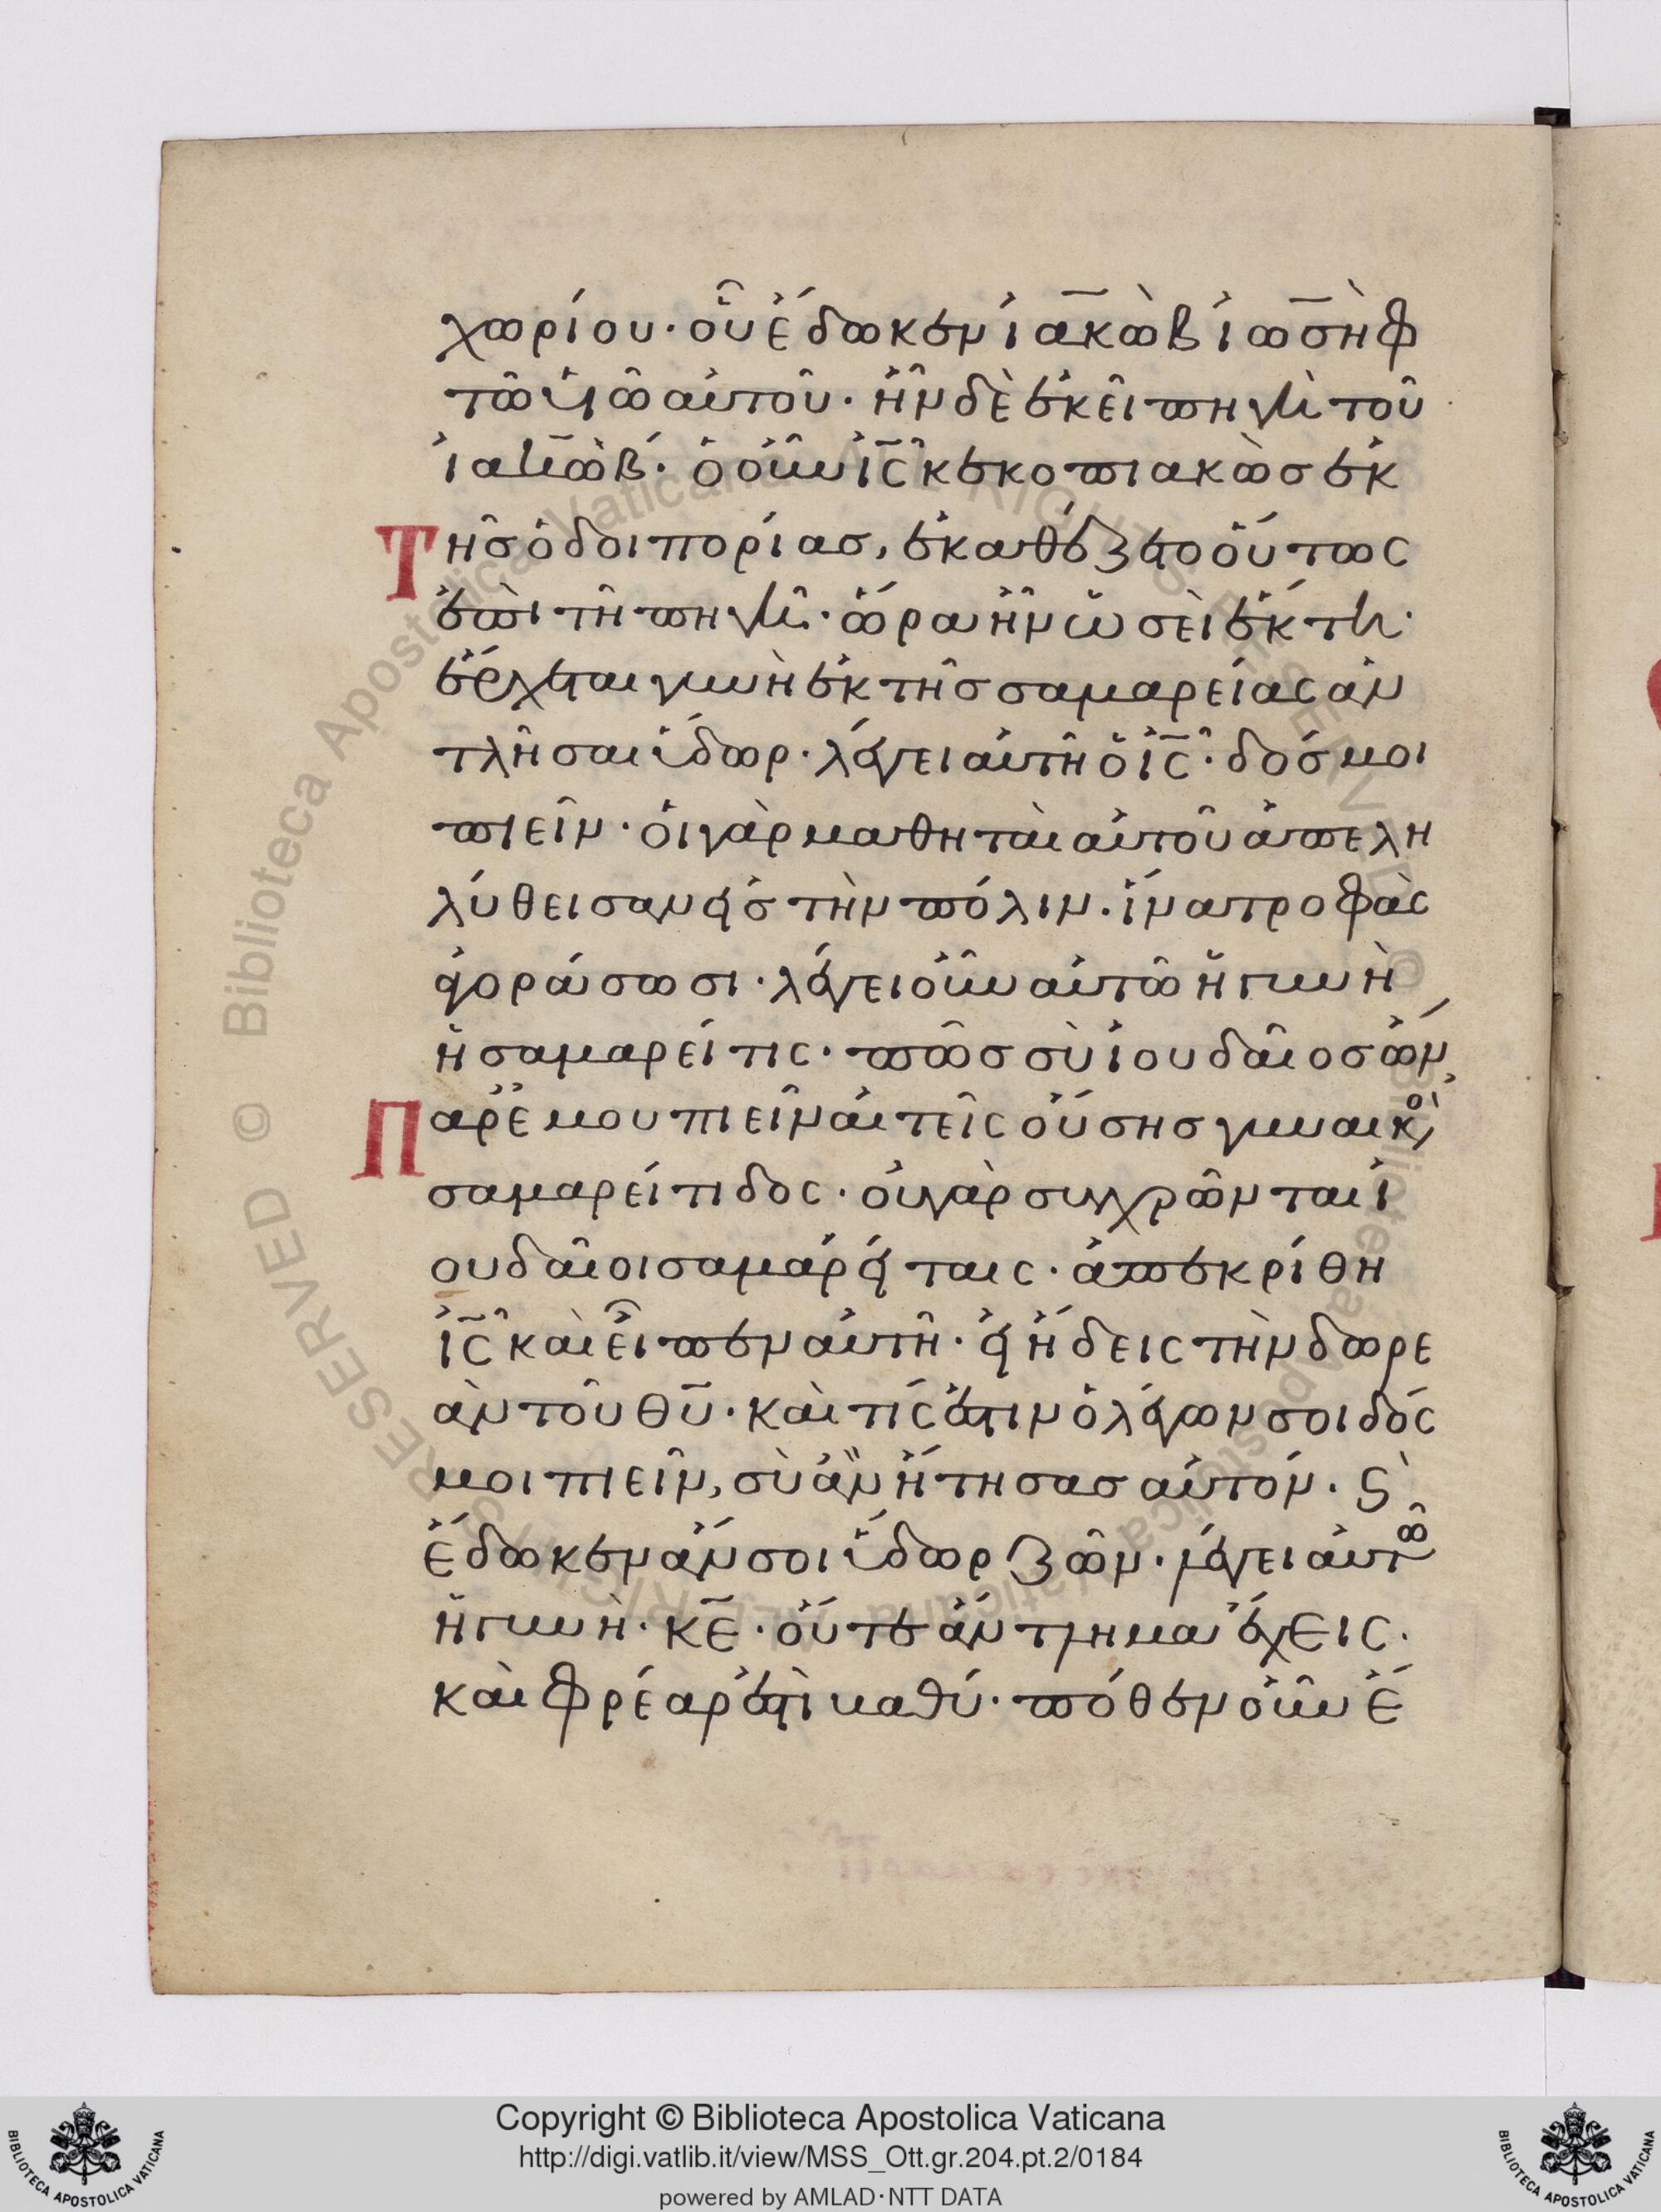 χωρίου· οὗ ἔδωκεν ἰακὼβ ἰωσὴφ
τῶ υἱῶ αὐτοῦ· ἦν δὲ ἐκεῖ πηγὴ τοῦ
ἰακὼβ· ὁ οὖν ἰ̅ς̅ κεκοπιακὼσ ἐκ
Τῆσ ὁδοιπορίασ, ἐκαθέζετο οὕτως
ἐπὶ τῆ πηγῆ· ὥρα ἦν ὡσεὶ ἕκτη·
ἔρχεται γυνὴ ἐκ τῆσ σαμαρείας ἀν
τλῆσαι ὕδωρ· λέγει αὐτῆ ὁ ἰ̅ς̅· δόσ μοι
πιεῖν· οἱ γὰρ μαθηταὶ αὐτοῦ ἀπελη
λύθεισαν εἰσ τὴν πόλιν· ἵνα τροφὰς
ἀγοράσωσι· λέγει οὖν αὐτῶ ἡ γυνὴ
ἡ σαμαρείτις· πῶσ σὺ ἰουδαῖοσ ὢν
Παρ ἐμοῦ πιεῖν αἰτεῖς οὔσησ γυναικὸ
σαμαρείτιδος· οὐ γὰρ συγχρῶνται ἰ
ουδαῖοι σαμαρείταις· ἀπεκρίθη
ἰ̅ς̅ καὶ εἶπεν αὐτῆ· εἰ ἤδεις τὴν δωρε
ὰν τοῦ θ̅υ̅· καὶ τίς ἐστιν ὁ λέγων σοι δός
μοι πιεῖν, σὺ ἂν ἤτησασ αὐτόν· ϗ
ἔδωκεν ἄν σοι ὕδωρ ζῶν· λέγει αὐτῶ
ἡ γυνὴ· κ̅ε̅· οὔτε ἄντλημα ἔχεις·
καὶ φρέαρ ἐστὶ βαθύ· πόθεν οὖν ἔ
Copyright © Biblioteca Apostolica Vaticana
http://digi.vatlib.it/view/MSS_Ott.gr.204.pt.2/0184
powered by AMLAD·NTT DATA
BIBLIOTECA APOSTOLICA VATICANA
BIBLIOTECA APOSTOLICA VATICANA